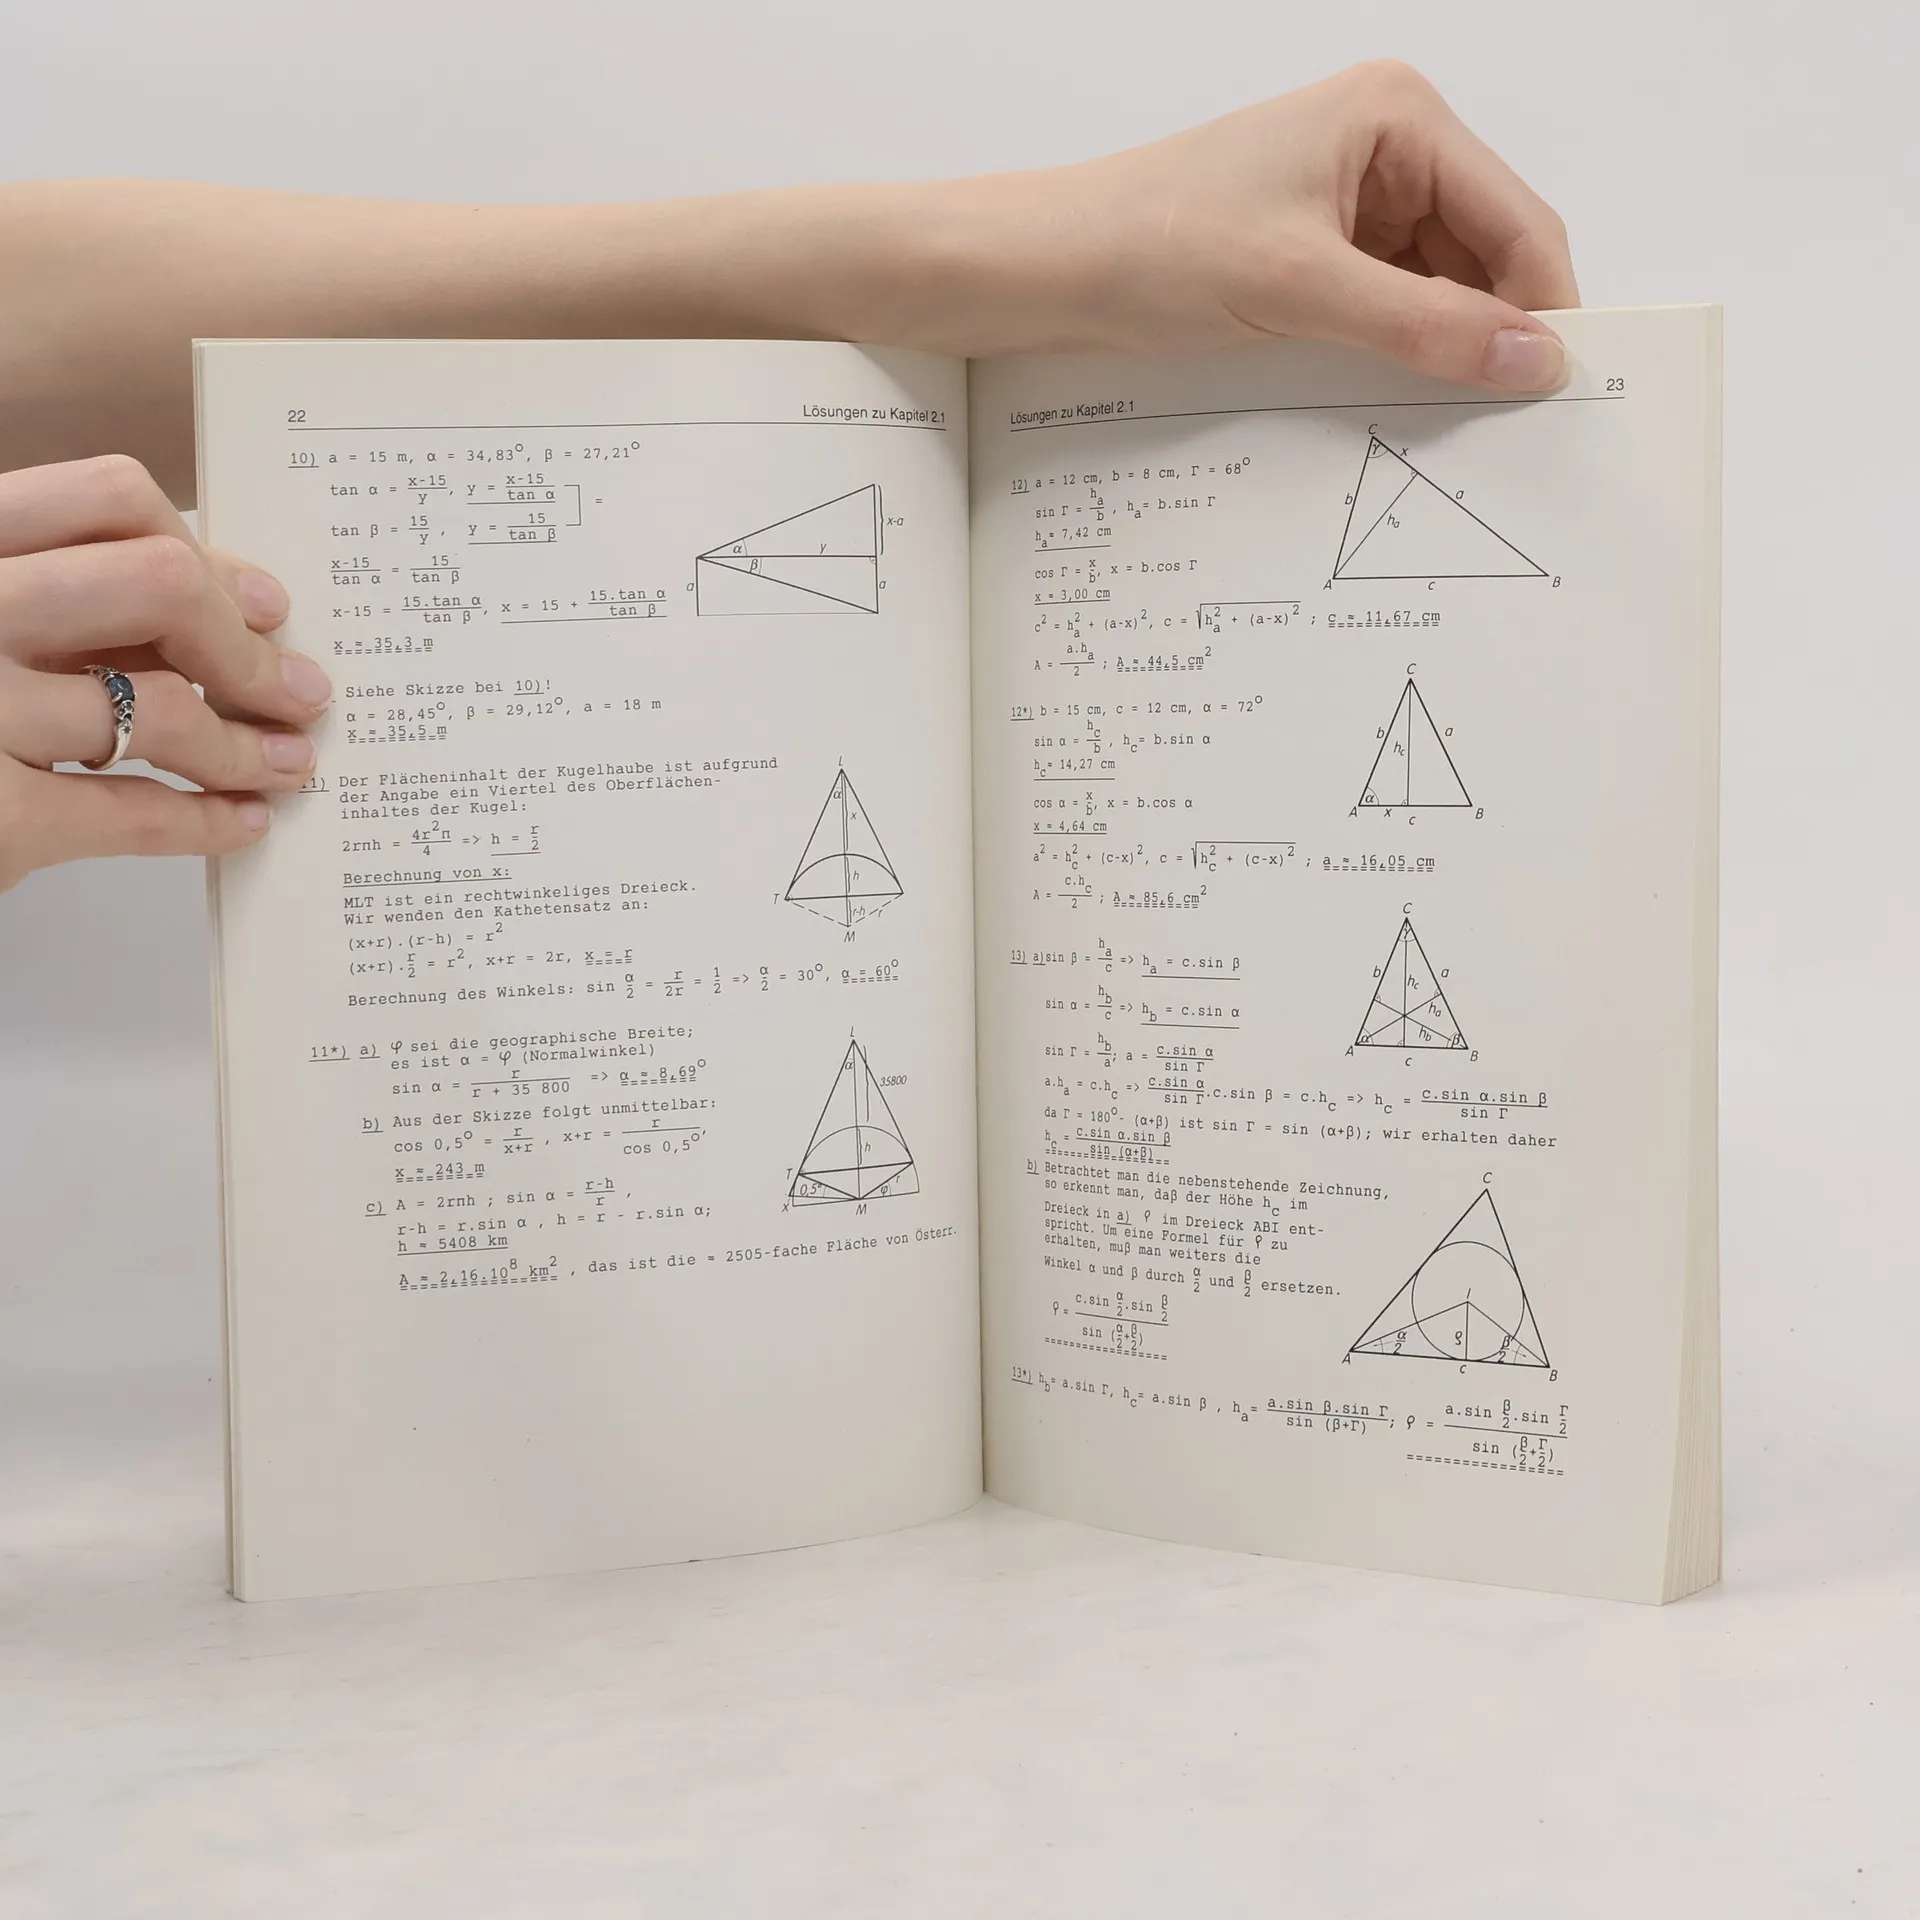 22
Lösungen zu Kapitel 2.1
10) a = 15 m, α = 34,83°, β = 27,21°
tan α = (x-15)/y, y = (x-15)/(tan α)
=
tan β = 15/y , y = 15/(tan β)
(x-15)/(tan α) = 15/(tan β)
x-15 = (15.tan α)/(tan β), x = 15 + (15.tan α)/(tan β)
x ≈ 35,3 m
α
β
y
x-a
a
a
Siehe Skizze bei 10)!
α = 28,45°, β = 29,12°, a = 18 m
x ≈ 35,5 m
11) Der Flächeninhalt der Kugelhaube ist aufgrund
der Angabe ein Viertel des Oberflächen-
inhaltes der Kugel:
2rπh = (4r²π)/4 => h = r/2
Berechnung von x:
MLT ist ein rechtwinkeliges Dreieck.
Wir wenden den Kathetensatz an:
(x+r).(r-h) = r²
(x+r).r/2 = r², x+r = 2r, x = r
Berechnung des Winkels: sin α/2 = r/2r = 1/2 => α/2 = 30°, α = 60°
L
α
x
h
T
r-h
r
M
11*) a) φ sei die geographische Breite;
es ist α = φ (Normalwinkel)
sin α = r/(r + 35 800) => α ≈ 8,69°
b) Aus der Skizze folgt unmittelbar:
cos 0,5° = r/(x+r) , x+r = r/(cos 0,5°),
x ≈ 243 m
c) A = 2rπh ; sin α = (r-h)/r ,
r-h = r.sin α , h = r - r.sin α;
h ≈ 5408 km
A ≈ 2,16.10⁸ km² , das ist die ≈ 2505-fache Fläche von Österr.
L
α
35800
h
T
0,5°
φ
r
x
M
Lösungen zu Kapitel 2.1
23
12) a = 12 cm, b = 8 cm, Γ = 68°
sin Γ = hₐ/b , hₐ= b.sin Γ
hₐ≈ 7,42 cm
cos Γ = x/b, x = b.cos Γ
x ≈ 3,00 cm
c² = hₐ² + (a-x)², c = √(hₐ² + (a-x)²) ; c ≈ 11,67 cm
A = (a.hₐ)/2 ; A ≈ 44,5 cm²
C
γ
x
b
a
hₐ
A
c
B
12*) b = 15 cm, c = 12 cm, α = 72°
sin α = h_c/b , h_c= b.sin α
h_c≈ 14,27 cm
cos α = x/b, x = b.cos α
x ≈ 4,64 cm
a² = h_c² + (c-x)², c = √(h_c² + (c-x)²) ; a ≈ 16,05 cm
A = (c.h_c)/2 ; A ≈ 85,6 cm²
C
b
h_c
a
α
A
x
c
B
13) a)sin β = hₐ/c => hₐ = c.sin β
sin α = h_b/c => h_b = c.sin α
sin Γ = h_b/a; a = (c.sin α)/(sin Γ)
a.hₐ = c.h_c => (c.sin α)/(sin Γ).c.sin β = c.h_c => h_c = (c.sin α.sin β)/(sin Γ)
da Γ = 180°- (α+β) ist sin Γ = sin (α+β); wir erhalten daher
h_c = (c.sin α.sin β)/(sin (α+β))
C
γ
b
h_c
a
hₐ
h_b
α
β
A
c
B
b) Betrachtet man die nebenstehende Zeichnung,
so erkennt man, daß der Höhe h_c im
Dreieck in a) ρ im Dreieck ABI ent-
spricht. Um eine Formel für ρ zu
erhalten, muß man weiters die
Winkel α und β durch α/2 und β/2 ersetzen.
ρ = (c.sin α/2.sin β/2)/(sin (α/2+β/2))
C
I
α/2
ρ
β/2
A
c
B
13*) h_b= a.sin Γ, h_c= a.sin β , hₐ= (a.sin β.sin Γ)/(sin (β+Γ)); ρ = (a.sin β/2.sin Γ/2)/(sin (β/2+Γ/2))